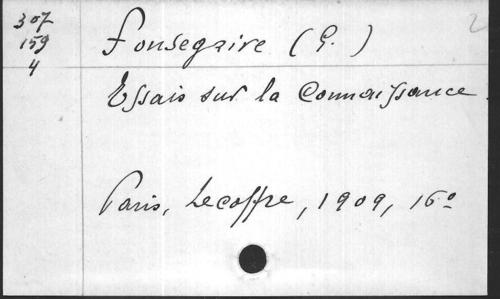 307
159
4
Fonsegrire (G.)
Essais sur la Connaissance
Paris, Lecoffre, 1909, 16º
2